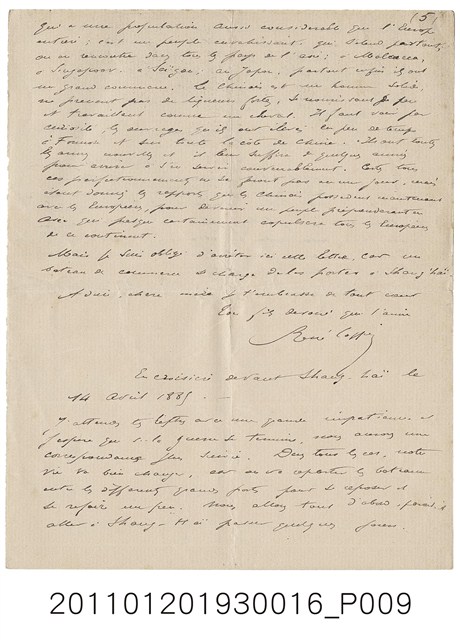 (5)
qui a une population aussi considérable que l'Europe
entière; c'est un peuple envahissant qui s'étend partout,
on en rencontre dans tous les pays de l'Asie; à Malacca,
à Singapoor, à Saïgon, au Japon, partout enfin ils ont
un grand commerce. Le Chinois est un homme solide,
ne prenant pas de liqueurs fortes, se nourrissant de peu
et travaillant comme un cheval. Il faut voir par
curiosité les ouvrages qu'ils ont élevés en peu de temps
à Formose et sur toute la côte de Chine. Ils ont toutes
les armes nouvelles et il leur suffira de quelques années
pour arriver à s'en servir convenablement. Certes tous
ces perfectionnements ne se feront pas en un jour, mais
étant donnés les rapports que les Chinois possèdent maintenant
avec les Européens, pour devenir un peuple prépondérant en
Asie qui presque certainement expulsera tous les Européens
de ce continent.
Mais je suis obligé d'arrêter ici cette lettre, car un
bateau de commerce se charge de les porter à Shang-haï.
Adieu, chère mère, je t'embrasse de tout cœur
Ton fils dévoué qui t'aime
René Coppin
En croisière devant Shang-haï le
14 Avril 1885. —
J'attends tes lettres avec une grande impatience et
j'espère que si la guerre se termine, nous aurons une
correspondance plus suivie. Dans tous les cas, notre
vie va bien changer, car on va répartir les bateaux
entre les différents grands ports pour se reposer et
se refaire un peu. Nous allons tout d'abord, paraît-il
aller à Shang-Haï passer quelques jours.
201101201930016_P009